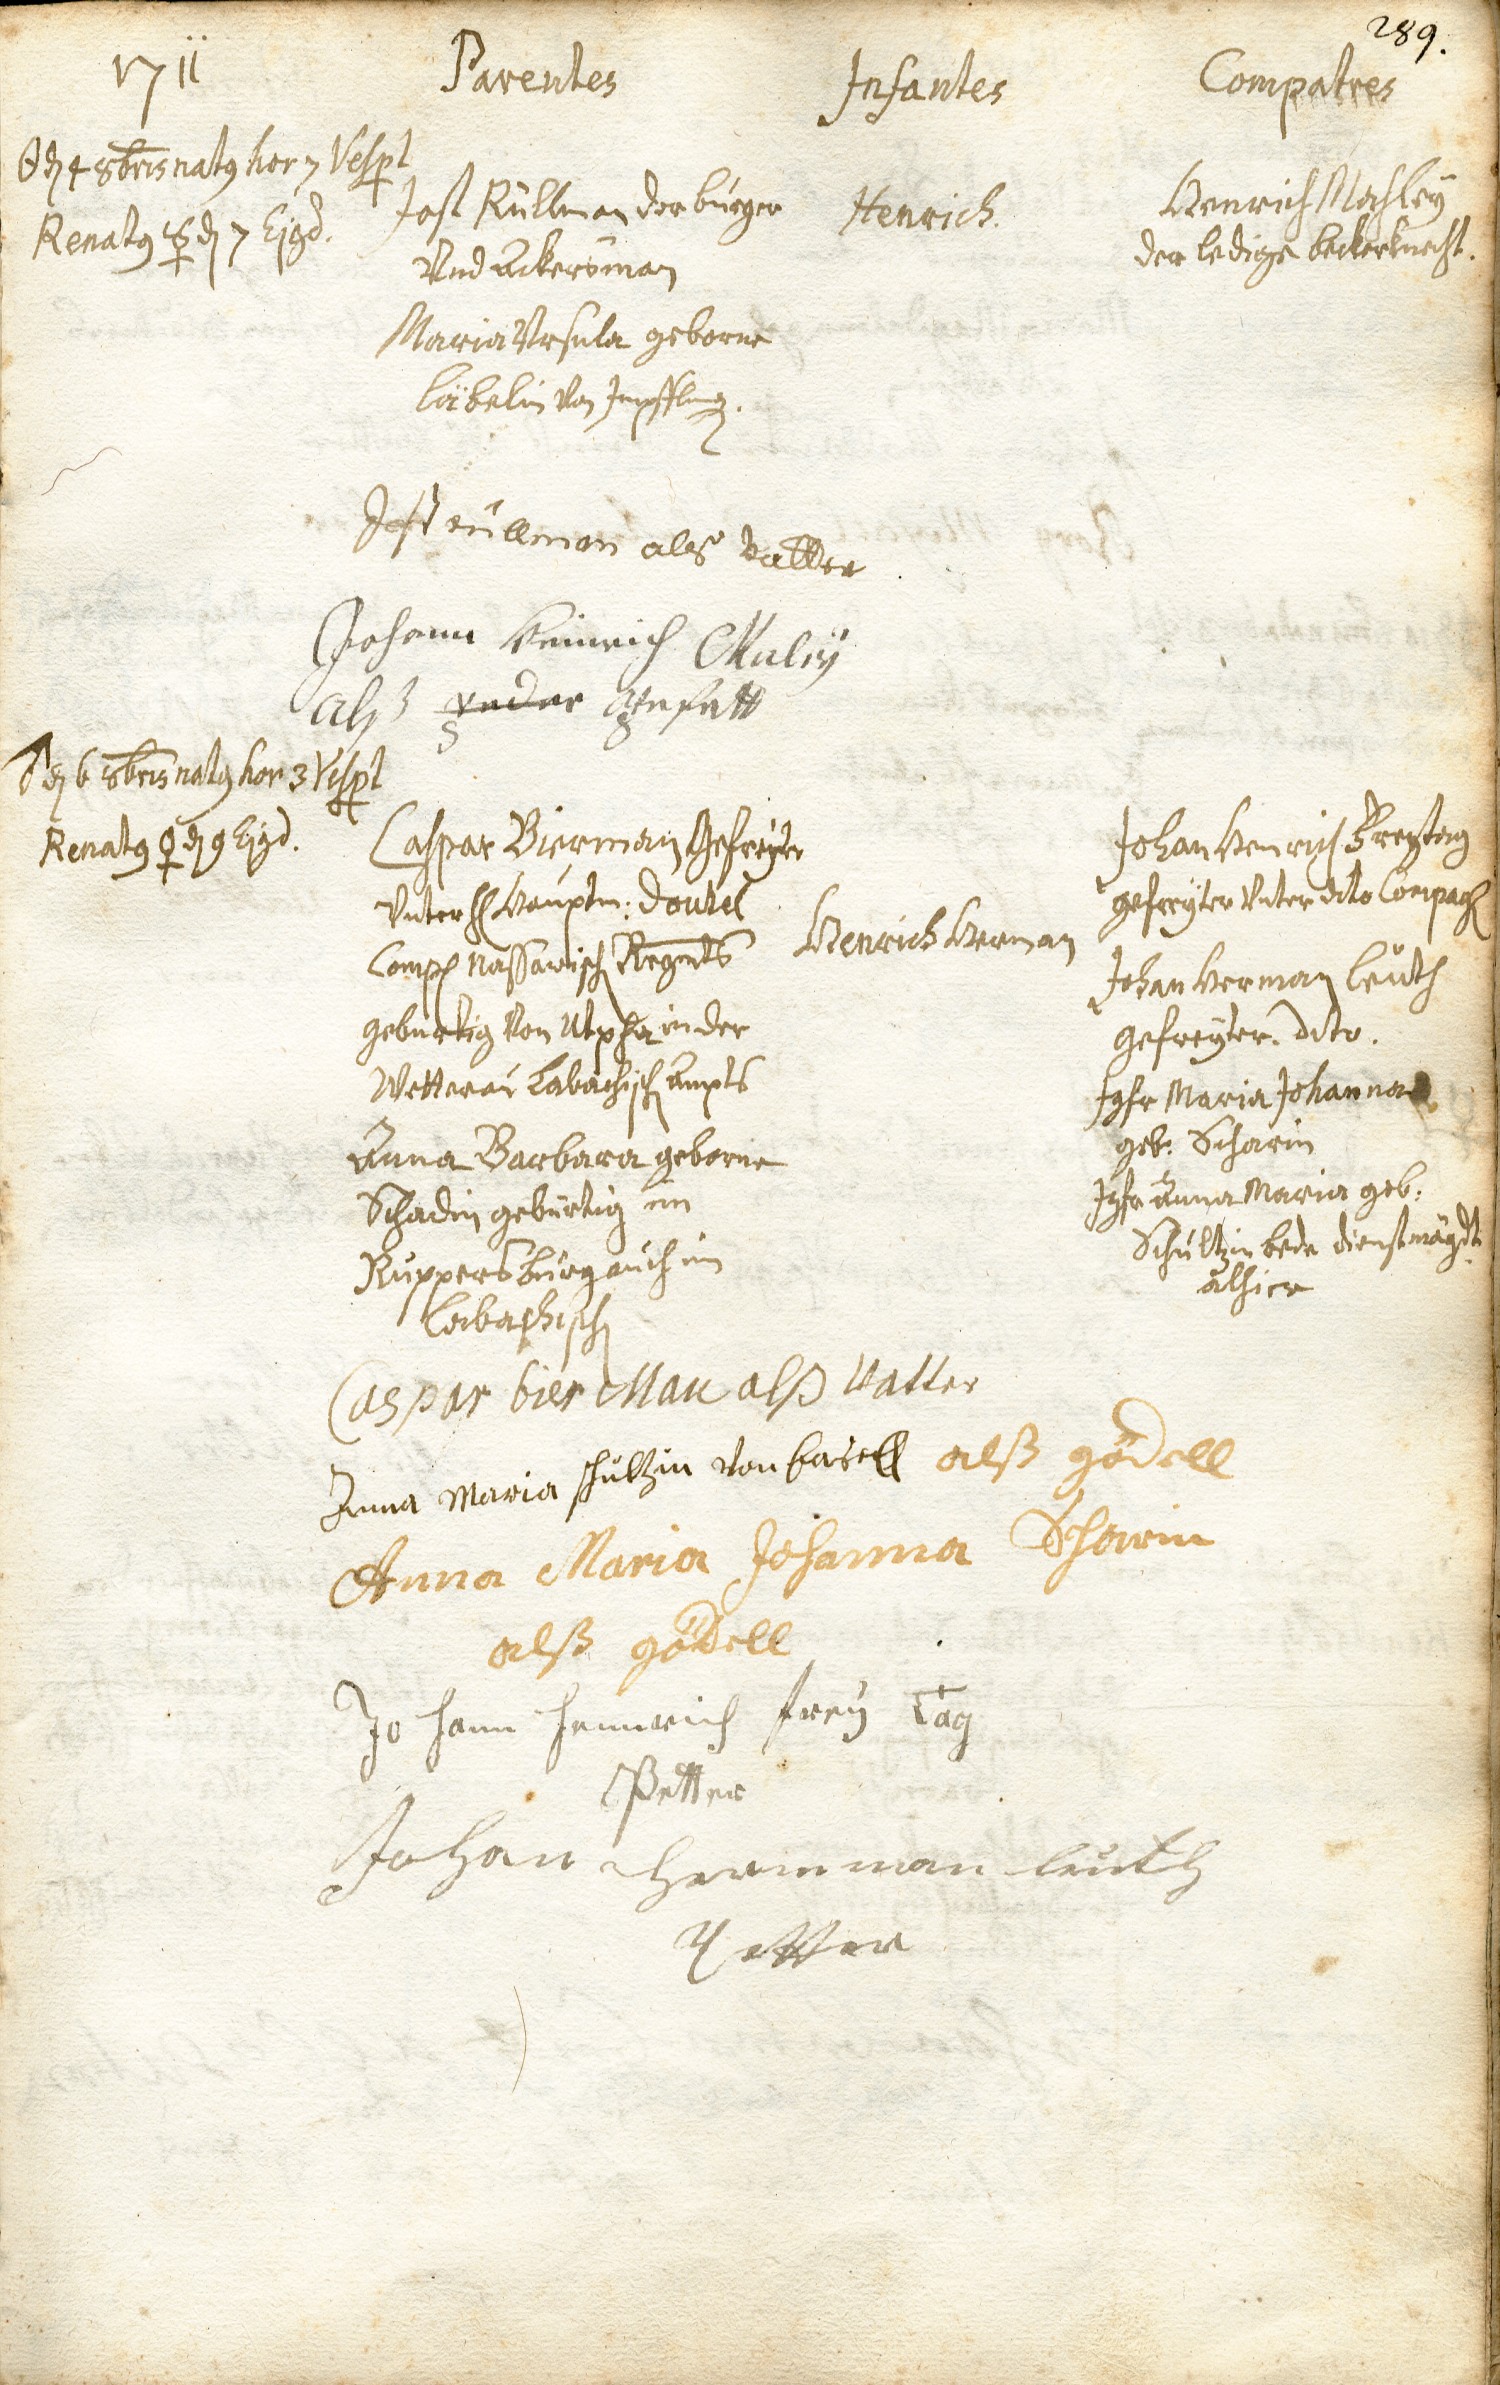 289.
1711
Parentes
Infantes
Compatres
d 4 8bris natg hor 7 Vespt
Renatg d 7 Ejgd.
Jost Rüllman der bürger
Vnd Ackersman
Maria Vrsula geborne
Löbelin von Impfling.
Henrich.
Henrich Mahleÿ
der ledige beckerknecht.
Jost rüllman alß vatter
Johann Heinrich Muleÿ
alß gefatt
d 6 8bris natg hor 3 Vespt
Renatg ♀ d 9 Ejgd.
Caspar Bierman Gefreÿter
Vnter H Hauptm: Doutel
Comp Nassawisch Regmts
gebürtig von Utpha in der
Wetterau Labachisch Ampts
Anna Barbara geborne
Schadin gebürtig im
Ruppersburg auch im
Lobachisch
Henrich Herman
Johan Henrich Freytag
gefreÿter Vnter dito Compag
Johan Herman Leuth
gefreÿter dito.
Jgfr Maria Johanna
geb: Scharin
Jgfr Anna Maria geb:
Schultzin bede dienstmägdt
alhier
Caspar bier Man alß Vatter
Anna Maria schultzin von basell alß gödell
Anna Maria Johanna Scharin
alß gödell
Johann Hennrich freÿ Tag
Petter
Johan Hermman leuth
Petter